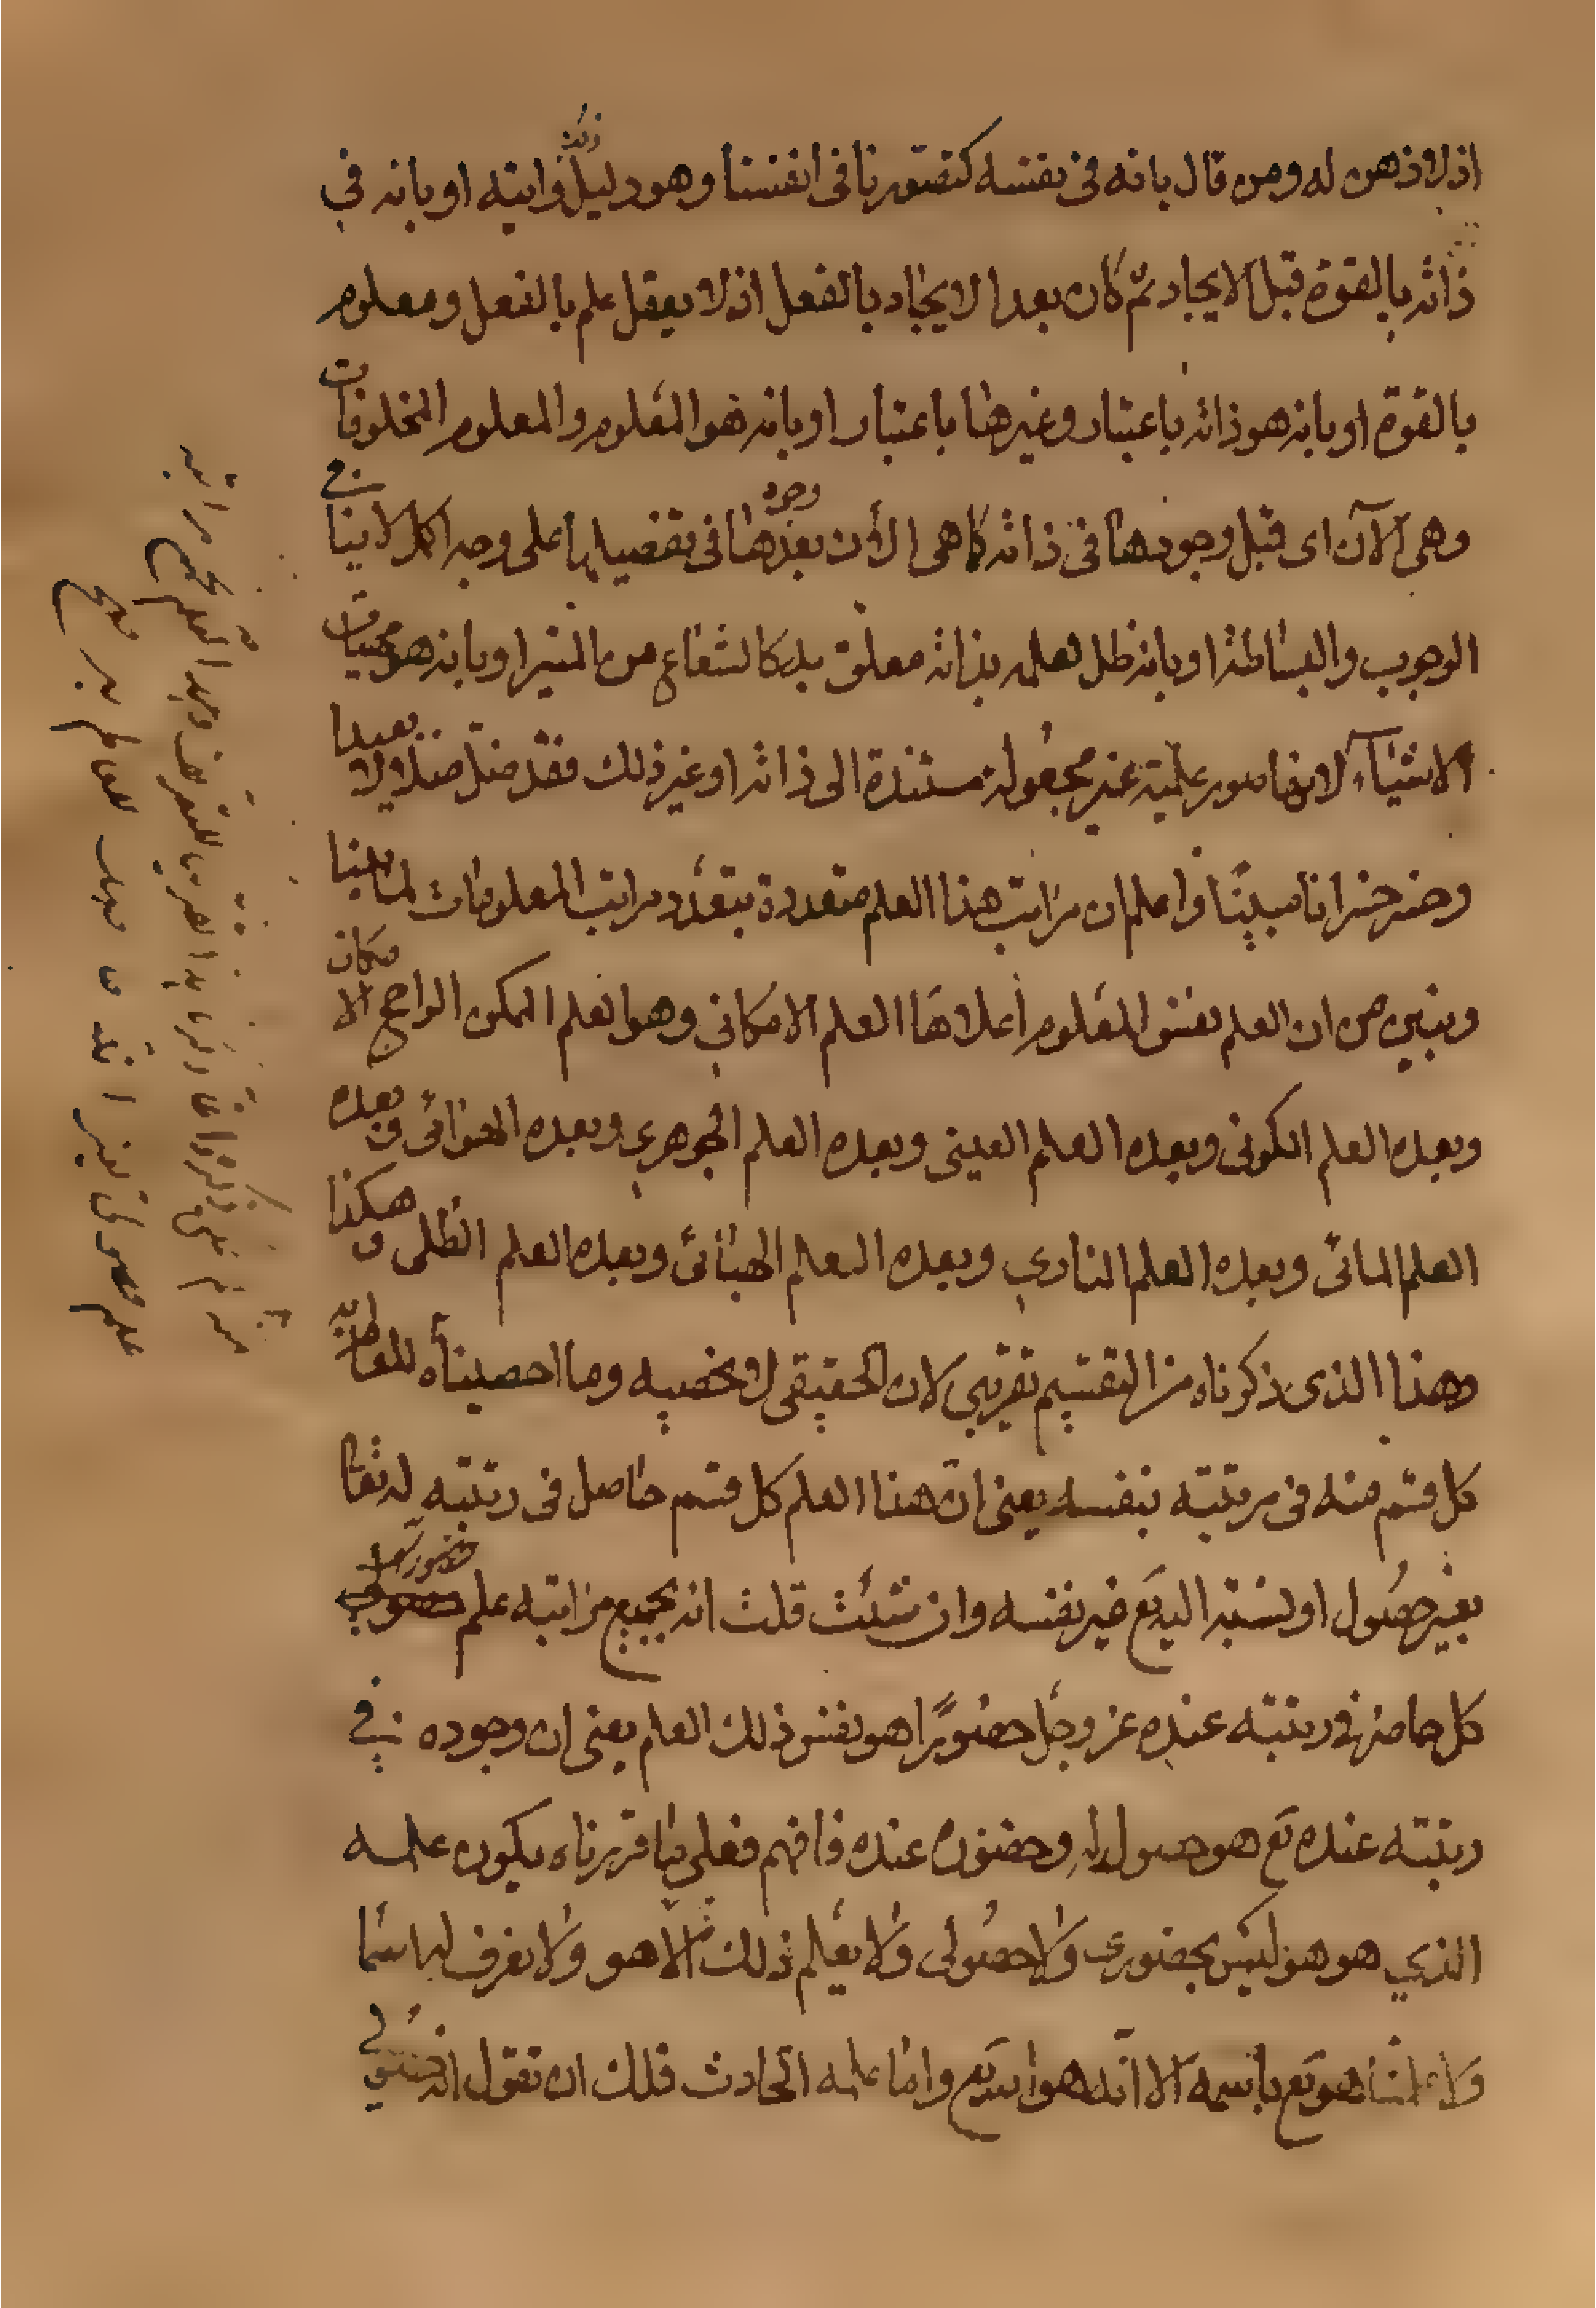 اذ لا ذهن له ومن قال بانه في نفسه كتصورنا في انفسنا وهو دليل ذلك وايته او بانه في
ذاته بالقوة قبل الايجاد ثم كان بعد الايجاد بالفعل اذ لا يعقل علم بالفعل ومعلوم
بالقوة او بانه هو ذاته باعتبار وغيرها باعتبار او بانه هو المعلوم والمعلوم المخلوقات
وهي الآن اى قبل وجودها في ذاته كما هى الآن بعد وجودها في تفصيلها على وجه اكمل لا ينافي
الوجوب والبساطة او بانه ظل لعلمه بذاته معلق به كالشعاع من المنير او بانه هو مهيات
الاشيآء لانها صور علمية غير مجعولة مستندة الى ذاته او غير ذلك فقد ضل ضلالا بعيدا
وخسر خسرانا مبينًا واعلم ان مراتب هذا العلم متعددة بتعدد مراتب المعلومات لما بينا
ونبين من ان العلم نفس المعلوم أعلاها العلم الامكاني وهو العلم الممكن الراجح الامكان
وبعده العلم الكونى وبعده العلم العينى وبعده العلم الجوهري وبعده الهوائى وبعده
العلم المائى وبعده العلم النارى وبعده العلم الهبائى وبعده العلم الظلى وهكذا
وهذا الذى ذكرناه من التقسيم تقريبي لان الحقيقي لا نحصيه وما احصيناه للمطابقة
كل قسم منه في مرتبته بنفسه يعنى ان هذا العلم كل قسم حاصل فى رتبته له تعالى
بغير حصول او لنسبته اليه تع غير نفسه وان شئت قلت انه بجميع مراتبه علم حضورى
كل حاضر في رتبته عنده عز وجل حضورًا هو نفس ذلك العلم يعنى ان وجوده في
رتبته عنده تع هو حصوله له وحضوره عنده فافهم فعلى ما قررناه يكون علمه
الذي هو هو ليس بحضورى ولا حصولى ولا يعلم ذلك الا هو ولا نعرف له اسما
ولا علمنا هو تع باسمه الا انه هو الله تع واما علمه الحادث فلك ان تقول انه حصولي